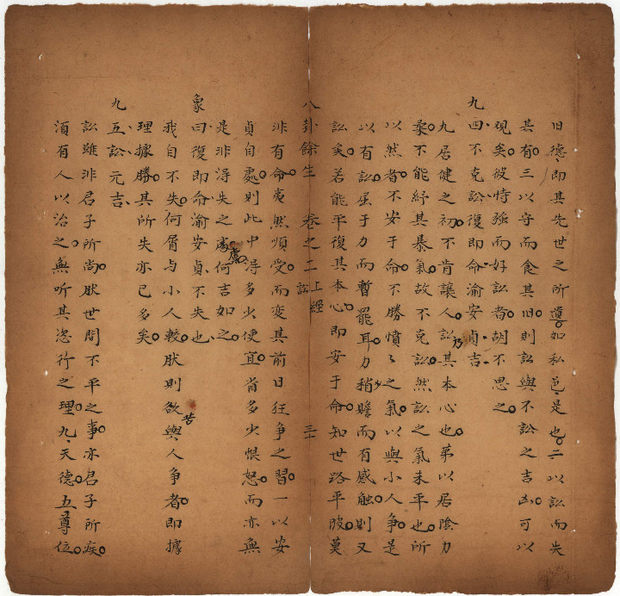 旧德即其先世之所遺如私邑是也二以訟而失
其有三以守而食其旧則訟與不訟之吉凶可以
現矣彼恃强而好訟者胡不思之
九曰不克訟復即命渝安貞吉
九居健之初不肯讓人訟乃其本心也第以居陰力
柔不能紓其暴氣故不克訟然訟之氣未平也所
以然者不安于命不勝憤〻之氣以與小人争是
以有訟屈于力而暫罷耳力稍贍而有感触則又
訟矣若能平復其本心即安于命知世路平陂莫
八卦餘生 卷之二 上經 訟 三十
非有命夷然順受而変其前日狂争之習一以安
貞自處則此中得多少便宜省多少恨怒而亦無
是非得失之慮何吉如之
象曰復即命渝安貞不失也
我自不失何屑与小人較肰則欲與人争者即據
理據勝其所失亦已多矣
九五訟元吉
訟雖非君子所尚肰世間不平之事亦君子所疾
須有人以治之無听其恣行之理九天德五尊位